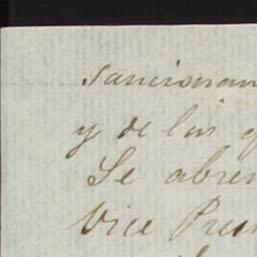 sancionan
y de las
Se abren
Vice Pres